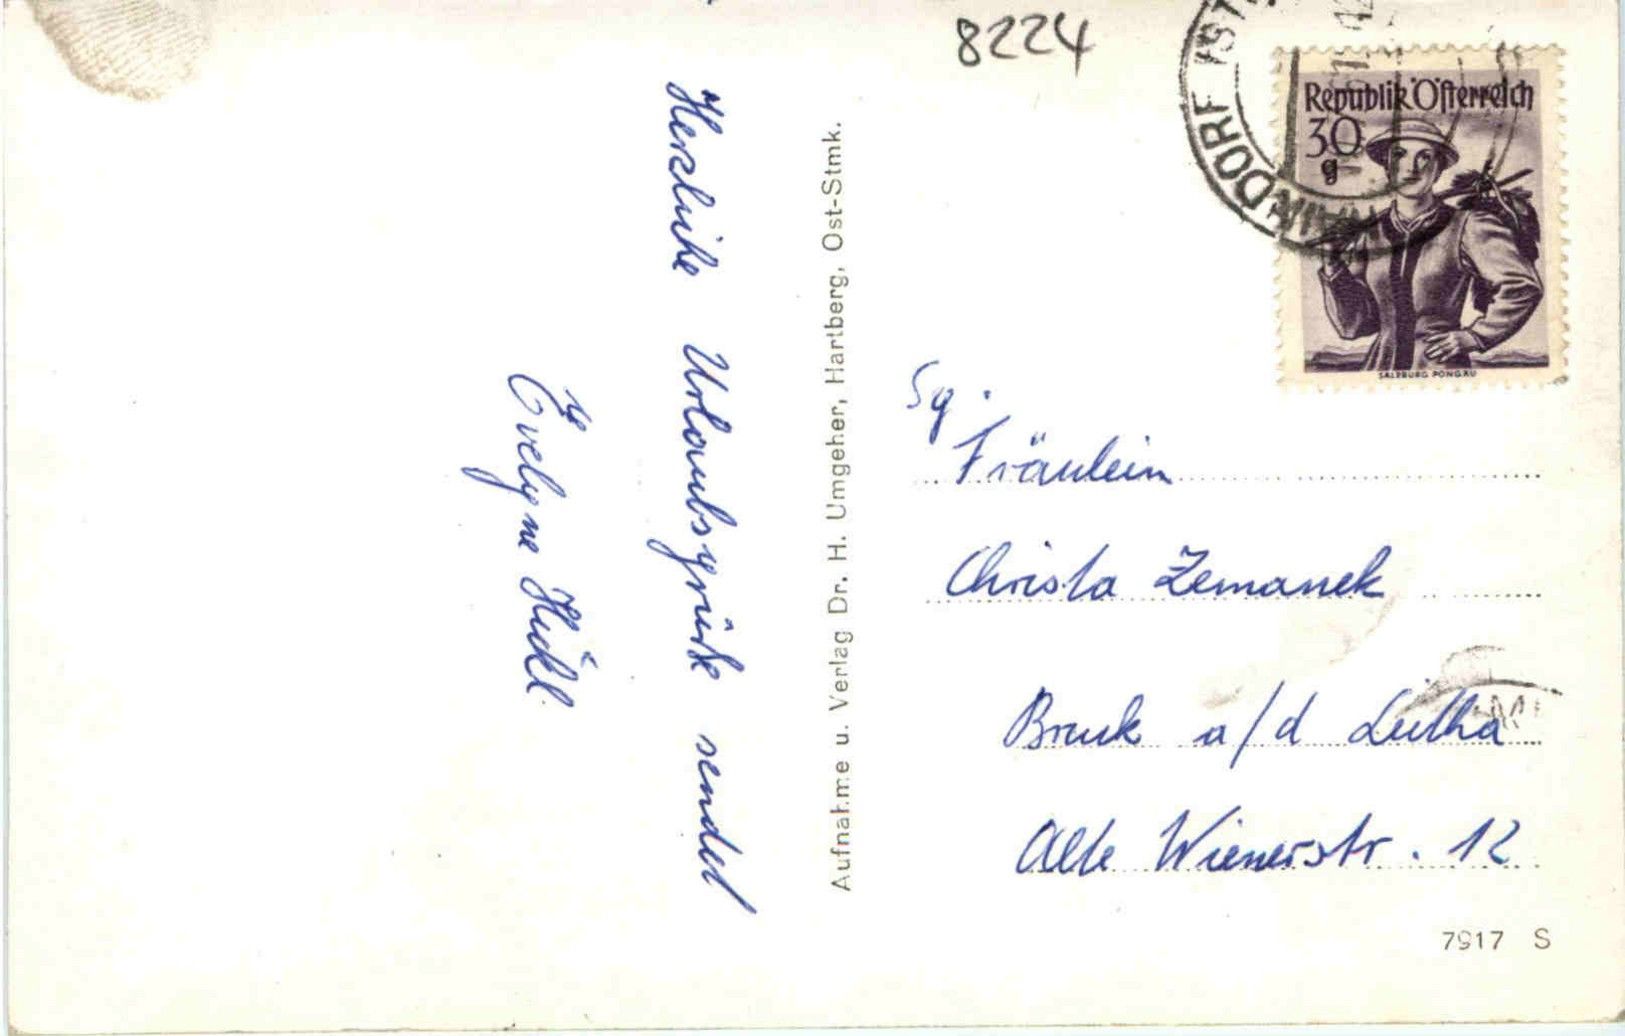 8224
Republik Österreich
30
g
SALZBURG PONGAU
Herzliche Urlaubsgrüße sendet
Evelyne Hickl.
Aufnahme u. Verlag Dr. H. Umgeher, Hartberg, Ost-Stmk.
Sg.
Fräulein
Christa Zemanek
Bruck a/d Leitha
Alte Wienerstr. 12
7917 S